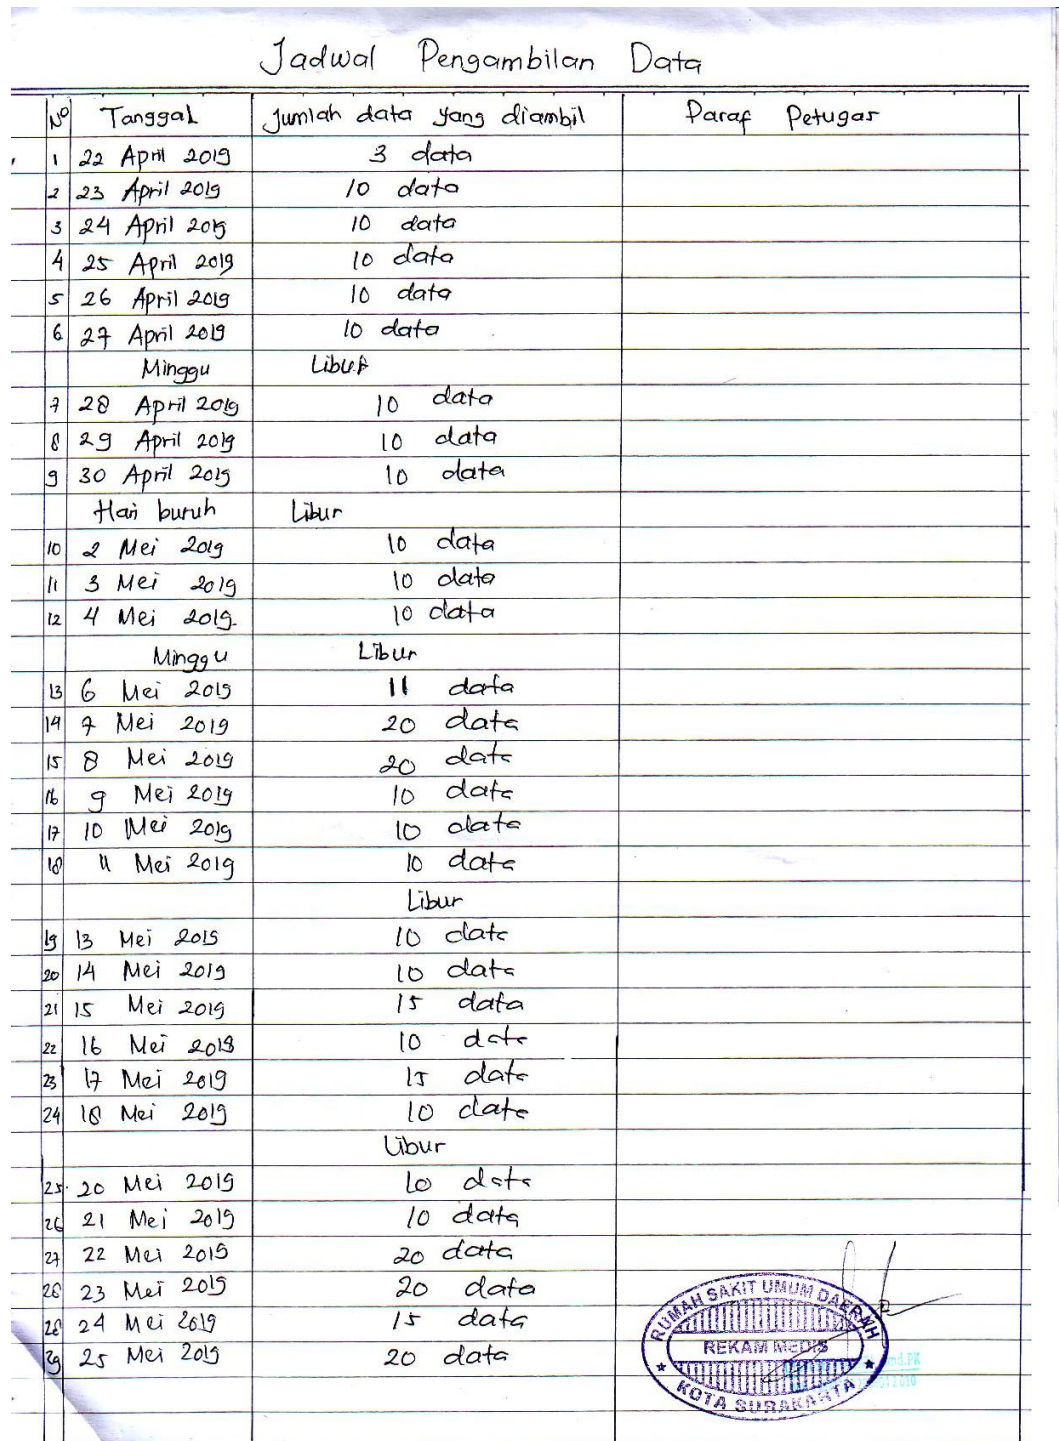 Jadwal Pengambilan Data
No Tanggal Jumlah data yang diambil Paraf Petugas
1 22 April 2019 3 data
2 23 April 2019 10 data
3 24 April 2019 10 data
4 25 April 2019 10 data
5 26 April 2019 10 data
6 27 April 2019 10 data
Minggu Libur
7 28 April 2019 10 data
8 29 April 2019 10 data
9 30 April 2019 10 data
Hari buruh Libur
10 2 Mei 2019 10 data
11 3 Mei 2019 10 data
12 4 Mei 2019. 10 data
Minggu Libur
13 6 Mei 2019 11 data
14 7 Mei 2019 20 data
15 8 Mei 2019 20 data
16 9 Mei 2019 10 data
17 10 Mei 2019 10 data
18 11 Mei 2019 10 data
Libur
19 13 Mei 2019 10 data
20 14 Mei 2019 10 data
21 15 Mei 2019 15 data
22 16 Mei 2019 10 data
23 17 Mei 2019 15 data
24 18 Mei 2019 10 data
Libur
25. 20 Mei 2019 10 data
26 21 Mei 2019 10 data
27 22 Mei 2019 20 data
28 23 Mei 2019 20 data
28 24 Mei 2019 15 data
29 25 Mei 2019 20 data
RUMAH SAKIT UMUM DAERAH
REKAM MEDIS
KOTA SURAKARTA